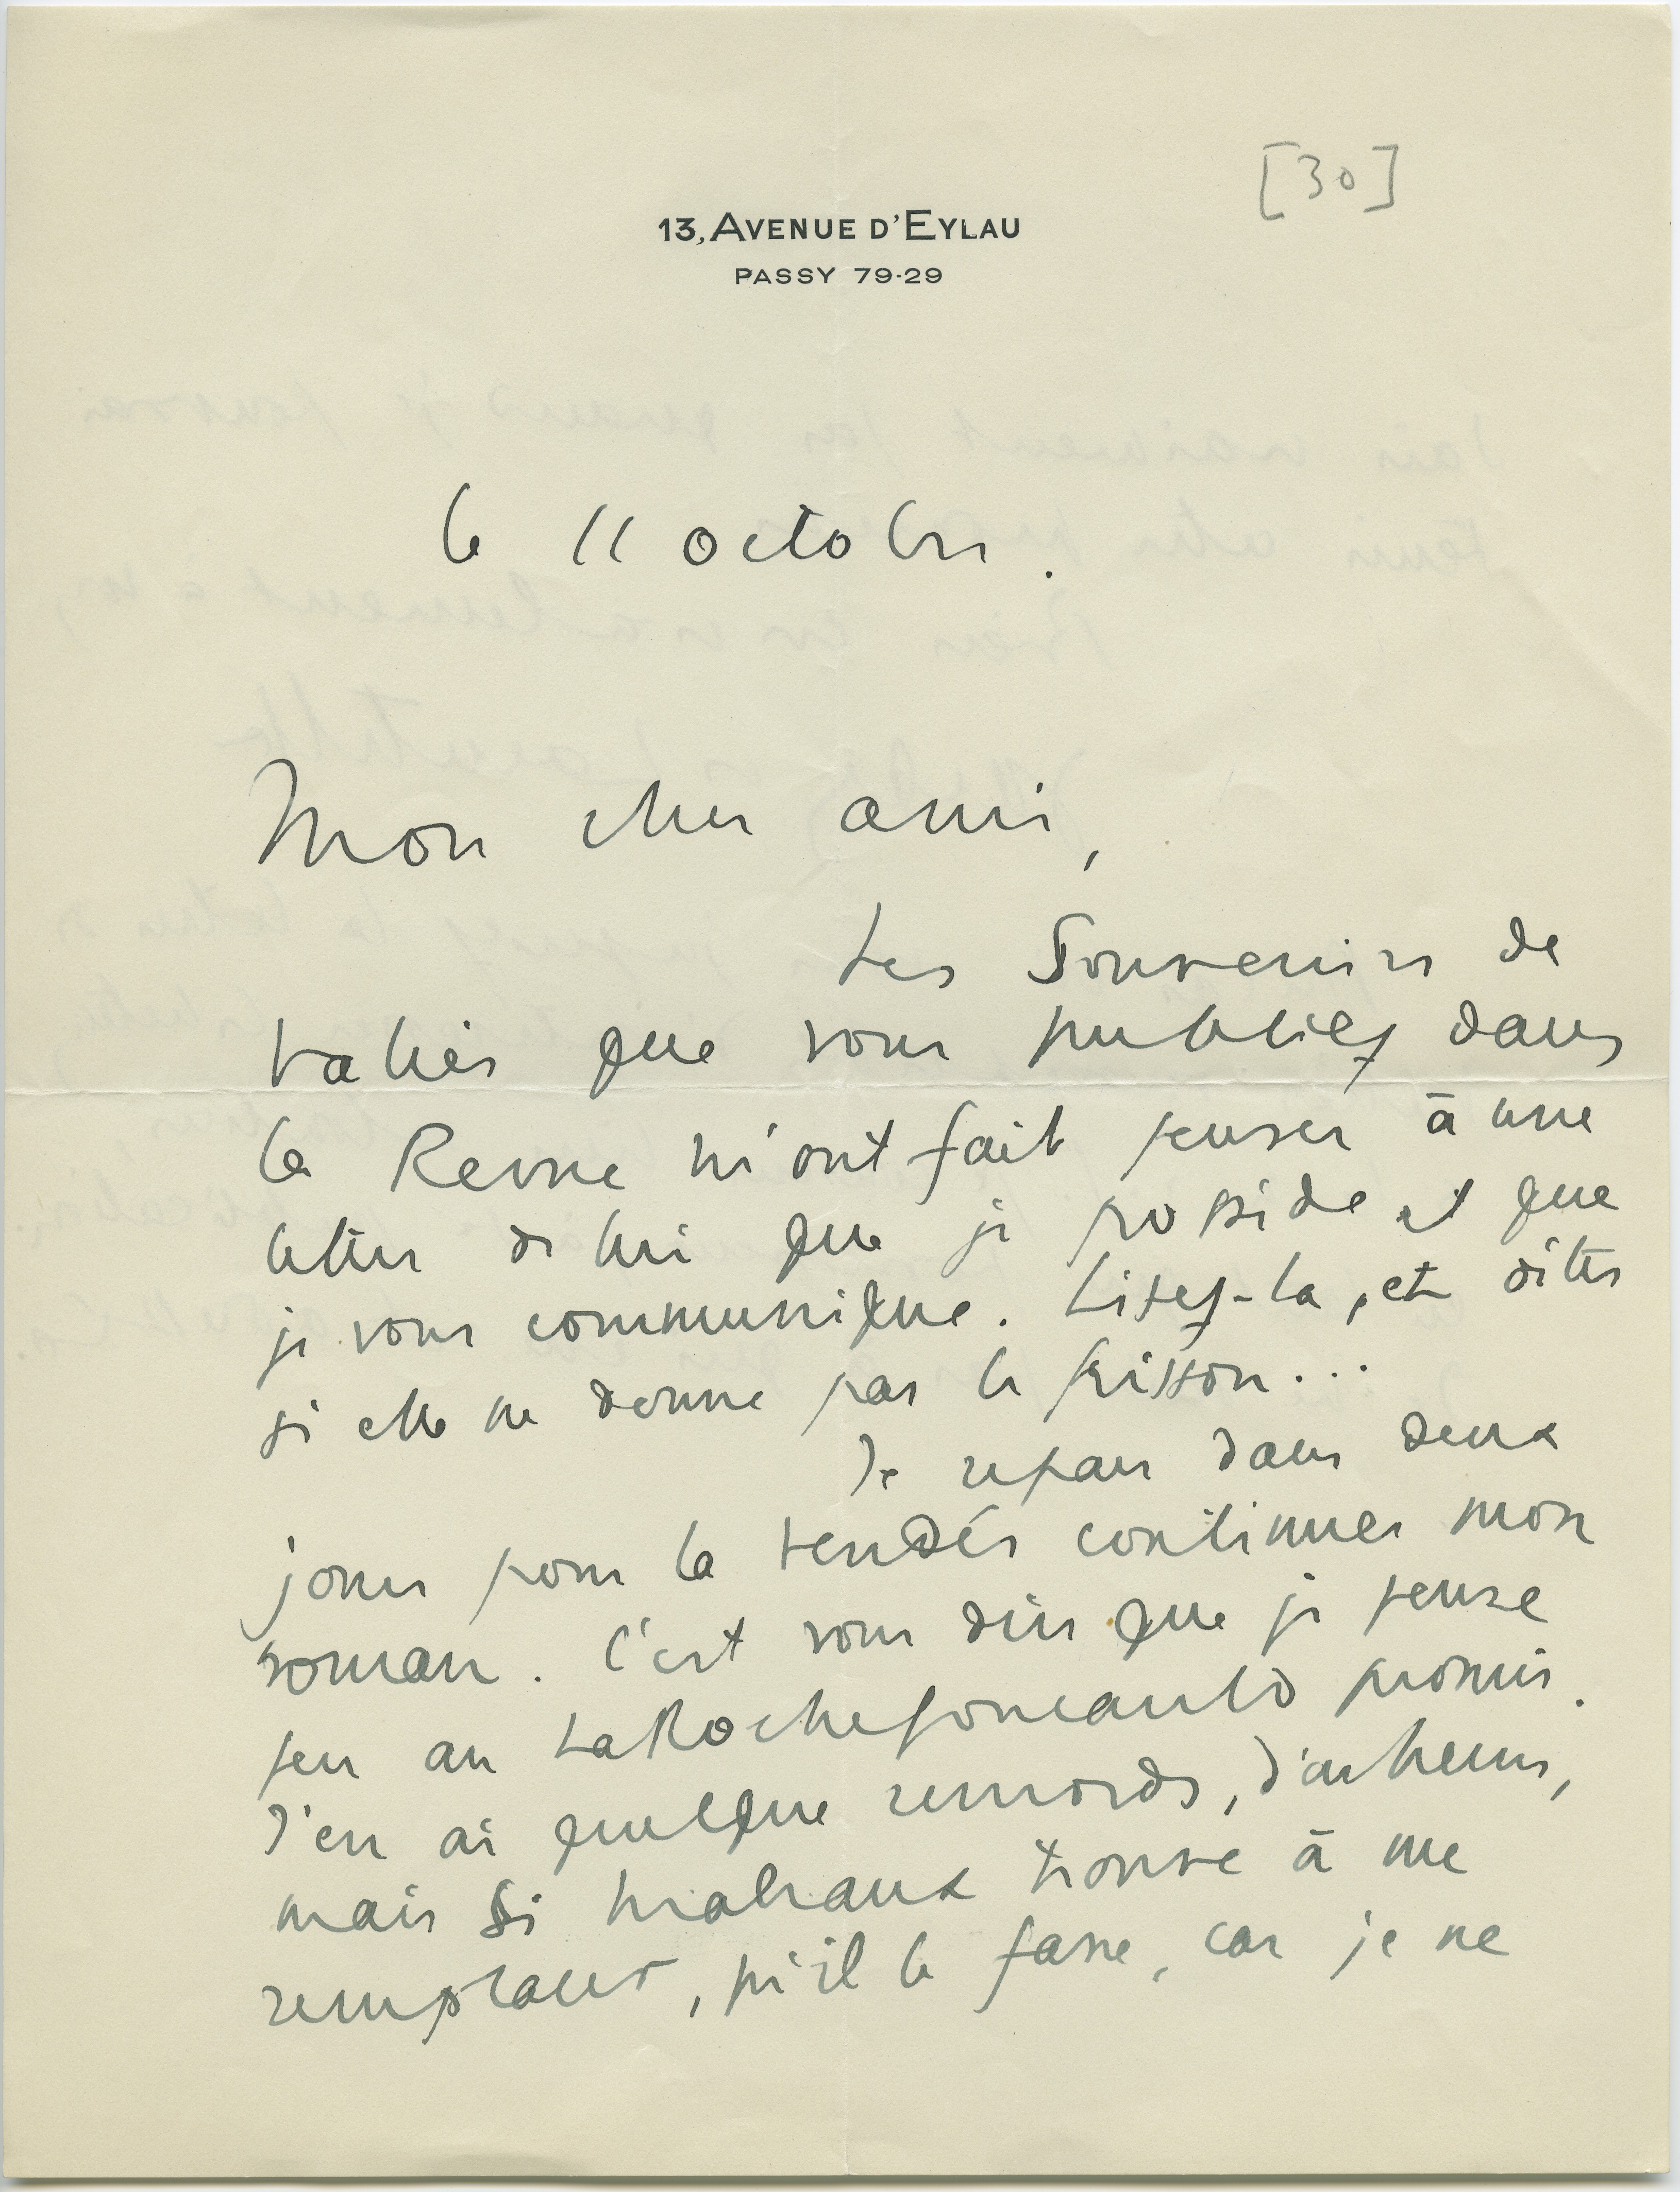 [30]
13, AVENUE D'EYLAU
PASSY 79-29
le 11 octobre.
Mon cher ami,
Les Souvenirs de
Vallès que vous publiez dans
la Revue m'ont fait penser à une
lettre de lui que je possède et que
je vous communique. Lisez-la, et dites
si elle ne donne pas le frisson...
Je repars dans deux
jours pour la Vendée continuer mon
roman. C'est vous dire que je pense
peu au La Rochefoucauld promis.
J'en ai quelque remords, d'ailleurs,
mais si Malraux trouve à me
remplacer, qu'il le fasse, car je ne